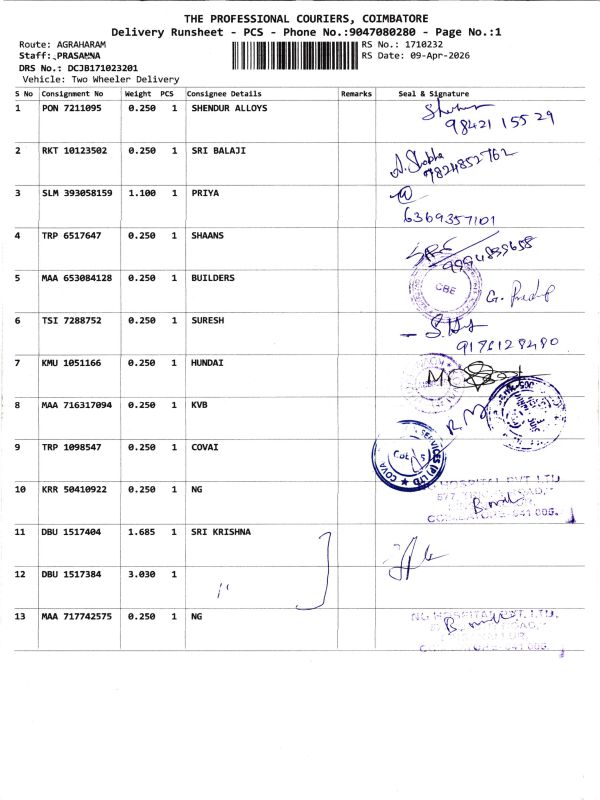 THE PROFESSIONAL COURIERS, COIMBATORE
Delivery Runsheet - PCS - Phone No.:9047080280 - Page No.:1
Route: AGRAHARAM
RS No.: 1710232
Staff: PRASANNA
RS Date: 09-Apr-2026
DRS No.: DCJB171023201
Vehicle: Two Wheeler Delivery
S No Consignment No Weight PCS Consignee Details Remarks Seal & Signature
1 PON 7211095 0.250 1 SHENDUR ALLOYS
98421 15529
2 RKT 10123502 0.250 1 SRI BALAJI
A. Shobha
9824852762
3 SLM 393058159 1.100 1 PRIYA
6369357101
4 TRP 6517647 0.250 1 SHAANS
5 MAA 653084128 0.250 1 BUILDERS
CBE
6 TSI 7288752 0.250 1 SURESH
9176128480
7 KMU 1051166 0.250 1 HUNDAI
8 MAA 716317094 0.250 1 KVB
9 TRP 1098547 0.250 1 COVAI
SERVICES (P) LTD
10 KRR 50410922 0.250 1 NG
HOSPITAL PVT. LTD
11 DBU 1517404 1.685 1 SRI KRISHNA
12 DBU 1517384 3.030 1 "
13 MAA 717742575 0.250 1 NG
NG HOSPITAL PVT. LTD.